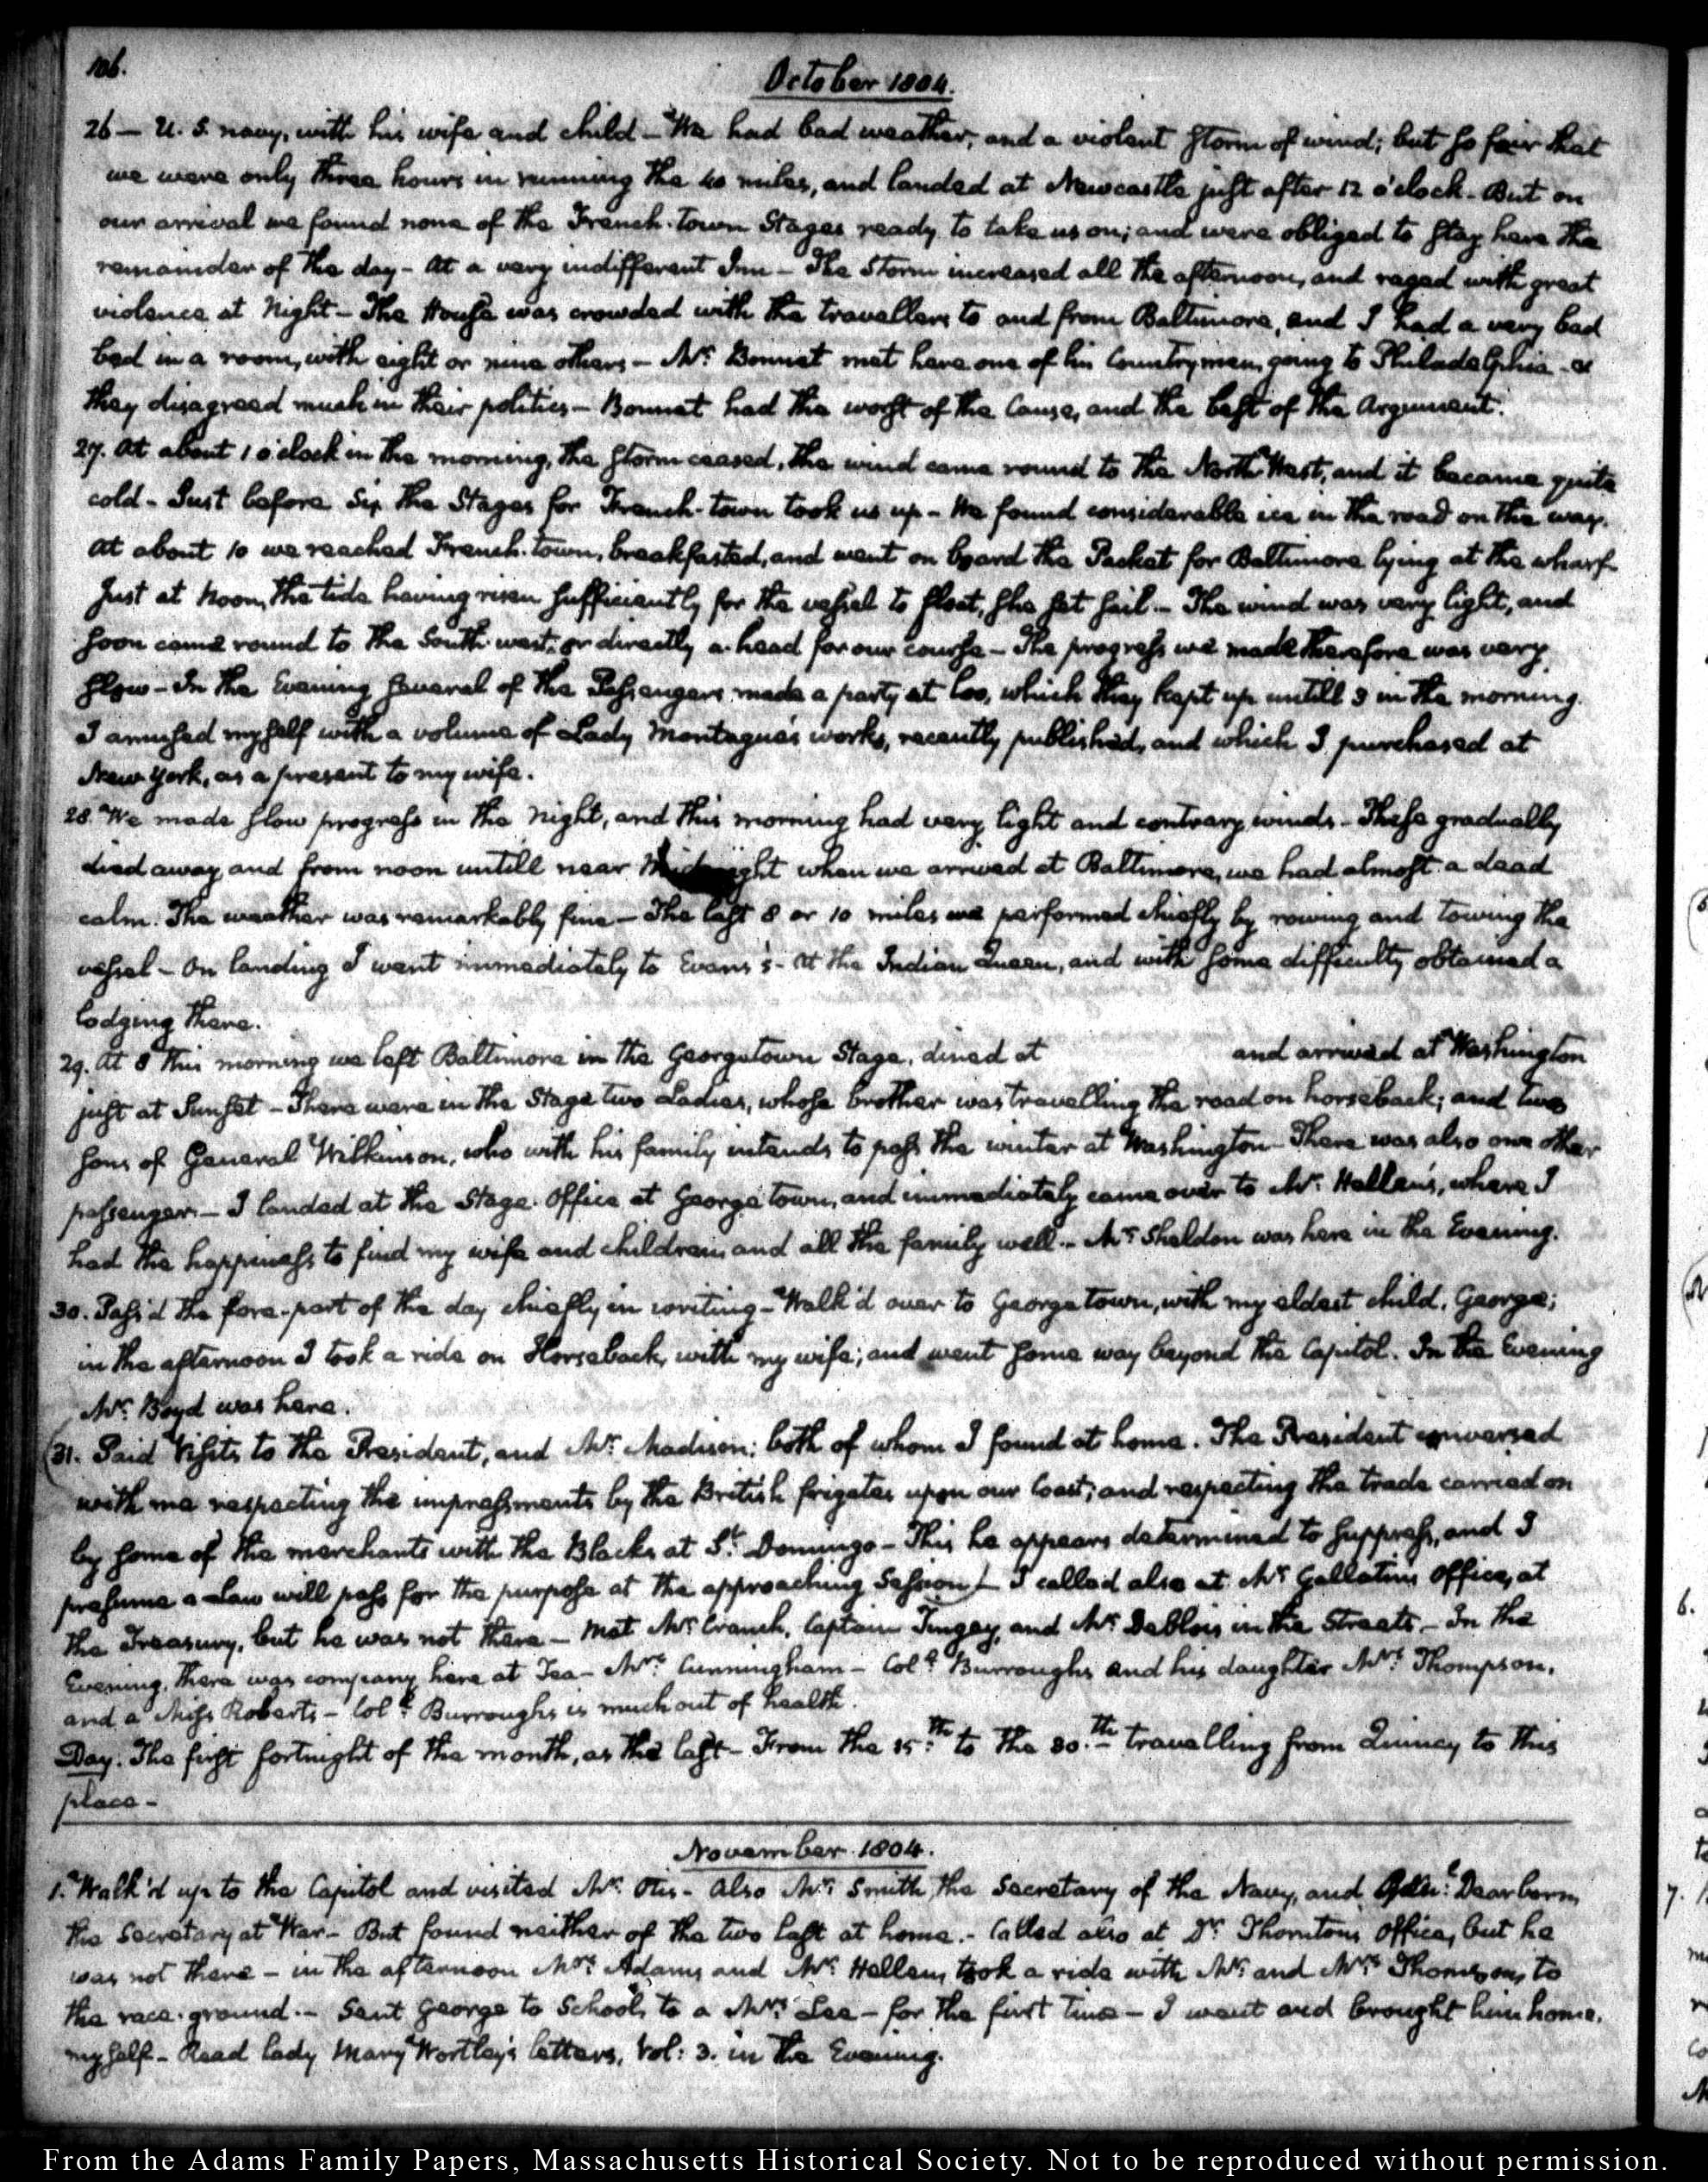 106.
October 1804.
26 — U. S. navy, with his wife and child — We had bad weather, and a violent storm of wind; but so fair that
we were only three hours in running the 40 miles, and landed at Newcastle just after 12 o'clock. But on
our arrival we found none of the French-town Stages ready to take us on; and were obliged to stay here the
remainder of the day — at a very indifferent Inn — The Storm increased all the afternoon, and raged with great
violence at Night — The House was crowded with the travellers to and from Baltimore, and I had a very bad
bed in a room, with eight or nine others — Mr. Bonnet met here one of his Countrymen, going to Philadelphia - &
they disagreed much in their politics — Bonnet had the worst of the Cause, and the best of the Argument.
27. At about 1 o'clock in the morning, the storm ceased, the wind came round to the North West, and it became quite
cold — Just before six the Stages for French-town took us up — We found considerable ice in the road on the way.
At about 10 we reached French-town, breakfasted, and went on board the Packet for Baltimore lying at the wharf
Just at Noon, the tide having risen sufficiently for the vessel to float, she set sail — The wind was very light, and
soon came round to the South-west, or directly a-head for our course — The progress we made therefore was very
slow — In the Evening several of the Passengers made a party at loo, which they kept up untill 3 in the morning.
I amused myself with a volume of Lady Montague's works, recently published, and which I purchased at
New York, as a present to my wife.
28. We made slow progress in the night, and this morning had very light and contrary winds — These gradually
died away and from noon untill near Midnight when we arrived at Baltimore, we had almost a dead
calm. The weather was remarkably fine — The last 8 or 10 miles we performed chiefly by rowing and towing the
vessel — On landing I went immediately to Evans's — at the Indian Queen, and with some difficulty obtained a
lodging there.
29. At 8 this morning we left Baltimore in the Georgetown Stage, dined at and arrived at Washington
just at Sunset — There were in the Stage two Ladies, whose brother was travelling the road on horseback; and two
sons of General Wilkinson, who with his family intends to pass the winter at Washington — There was also one other
passenger — I landed at the Stage-Office at George town, and immediately came over to Mr. Hellen's, where I
had the happiness to find my wife and children, and all the family well — Mr. Sheldon was here in the Evening.
30. Pass'd the fore-part of the day chiefly in writing — Walk'd over to George town, with my eldest child, George;
in the afternoon I took a ride on Horseback, with my wife; and went some way beyond the Capitol. In the Evening
Mr. Boyd was here.
(31. Paid Visits to the President, and Mr. Madison; both of whom I found at home. The President conversed
with me respecting the impressments by the British frigates upon our Coast; and respecting the trade carried on
by some of the merchants with the Blacks at St. Domingo — This he appears determined to suppress, and I
presume a Law will pass for the purpose at the approaching Session) — I called also at Mr. Gallatin's Office, at
the Treasury, but he was not there — Met Mr. Cranch, Captain Tingey, and Mr. Deblois in the Streets — In the
Evening, there was company here at Tea — Mrs. Cunningham — Coll. Burroughs and his daughter Mrs. Thompson,
and a Miss Roberts — Coll. Burroughs is much out of health.
Day. The first fortnight of the month, as the last — From the 15th. to the 30th. travelling from Quincy to this
place —
November 1804.
1. Walk'd up to the Capitol and visited Mr. Otis — also Mr. Smith, the Secretary of the Navy, and Genl. Dearborn,
the Secretary at War — But found neither of the two last at home. — Called also at Dr. Thornton's Office, but he
was not there — in the afternoon Mrs. Adams and Mrs. Hellen, took a ride with Mr. and Mrs. Thompson, to
the race-ground. — Sent George to School, to a Mrs. Lee — for the first time — I went and brought him home
myself — Read Lady Mary Wortley's letters, Vol: 3. in the Evening.
From the Adams Family Papers, Massachusetts Historical Society. Not to be reproduced without permission.